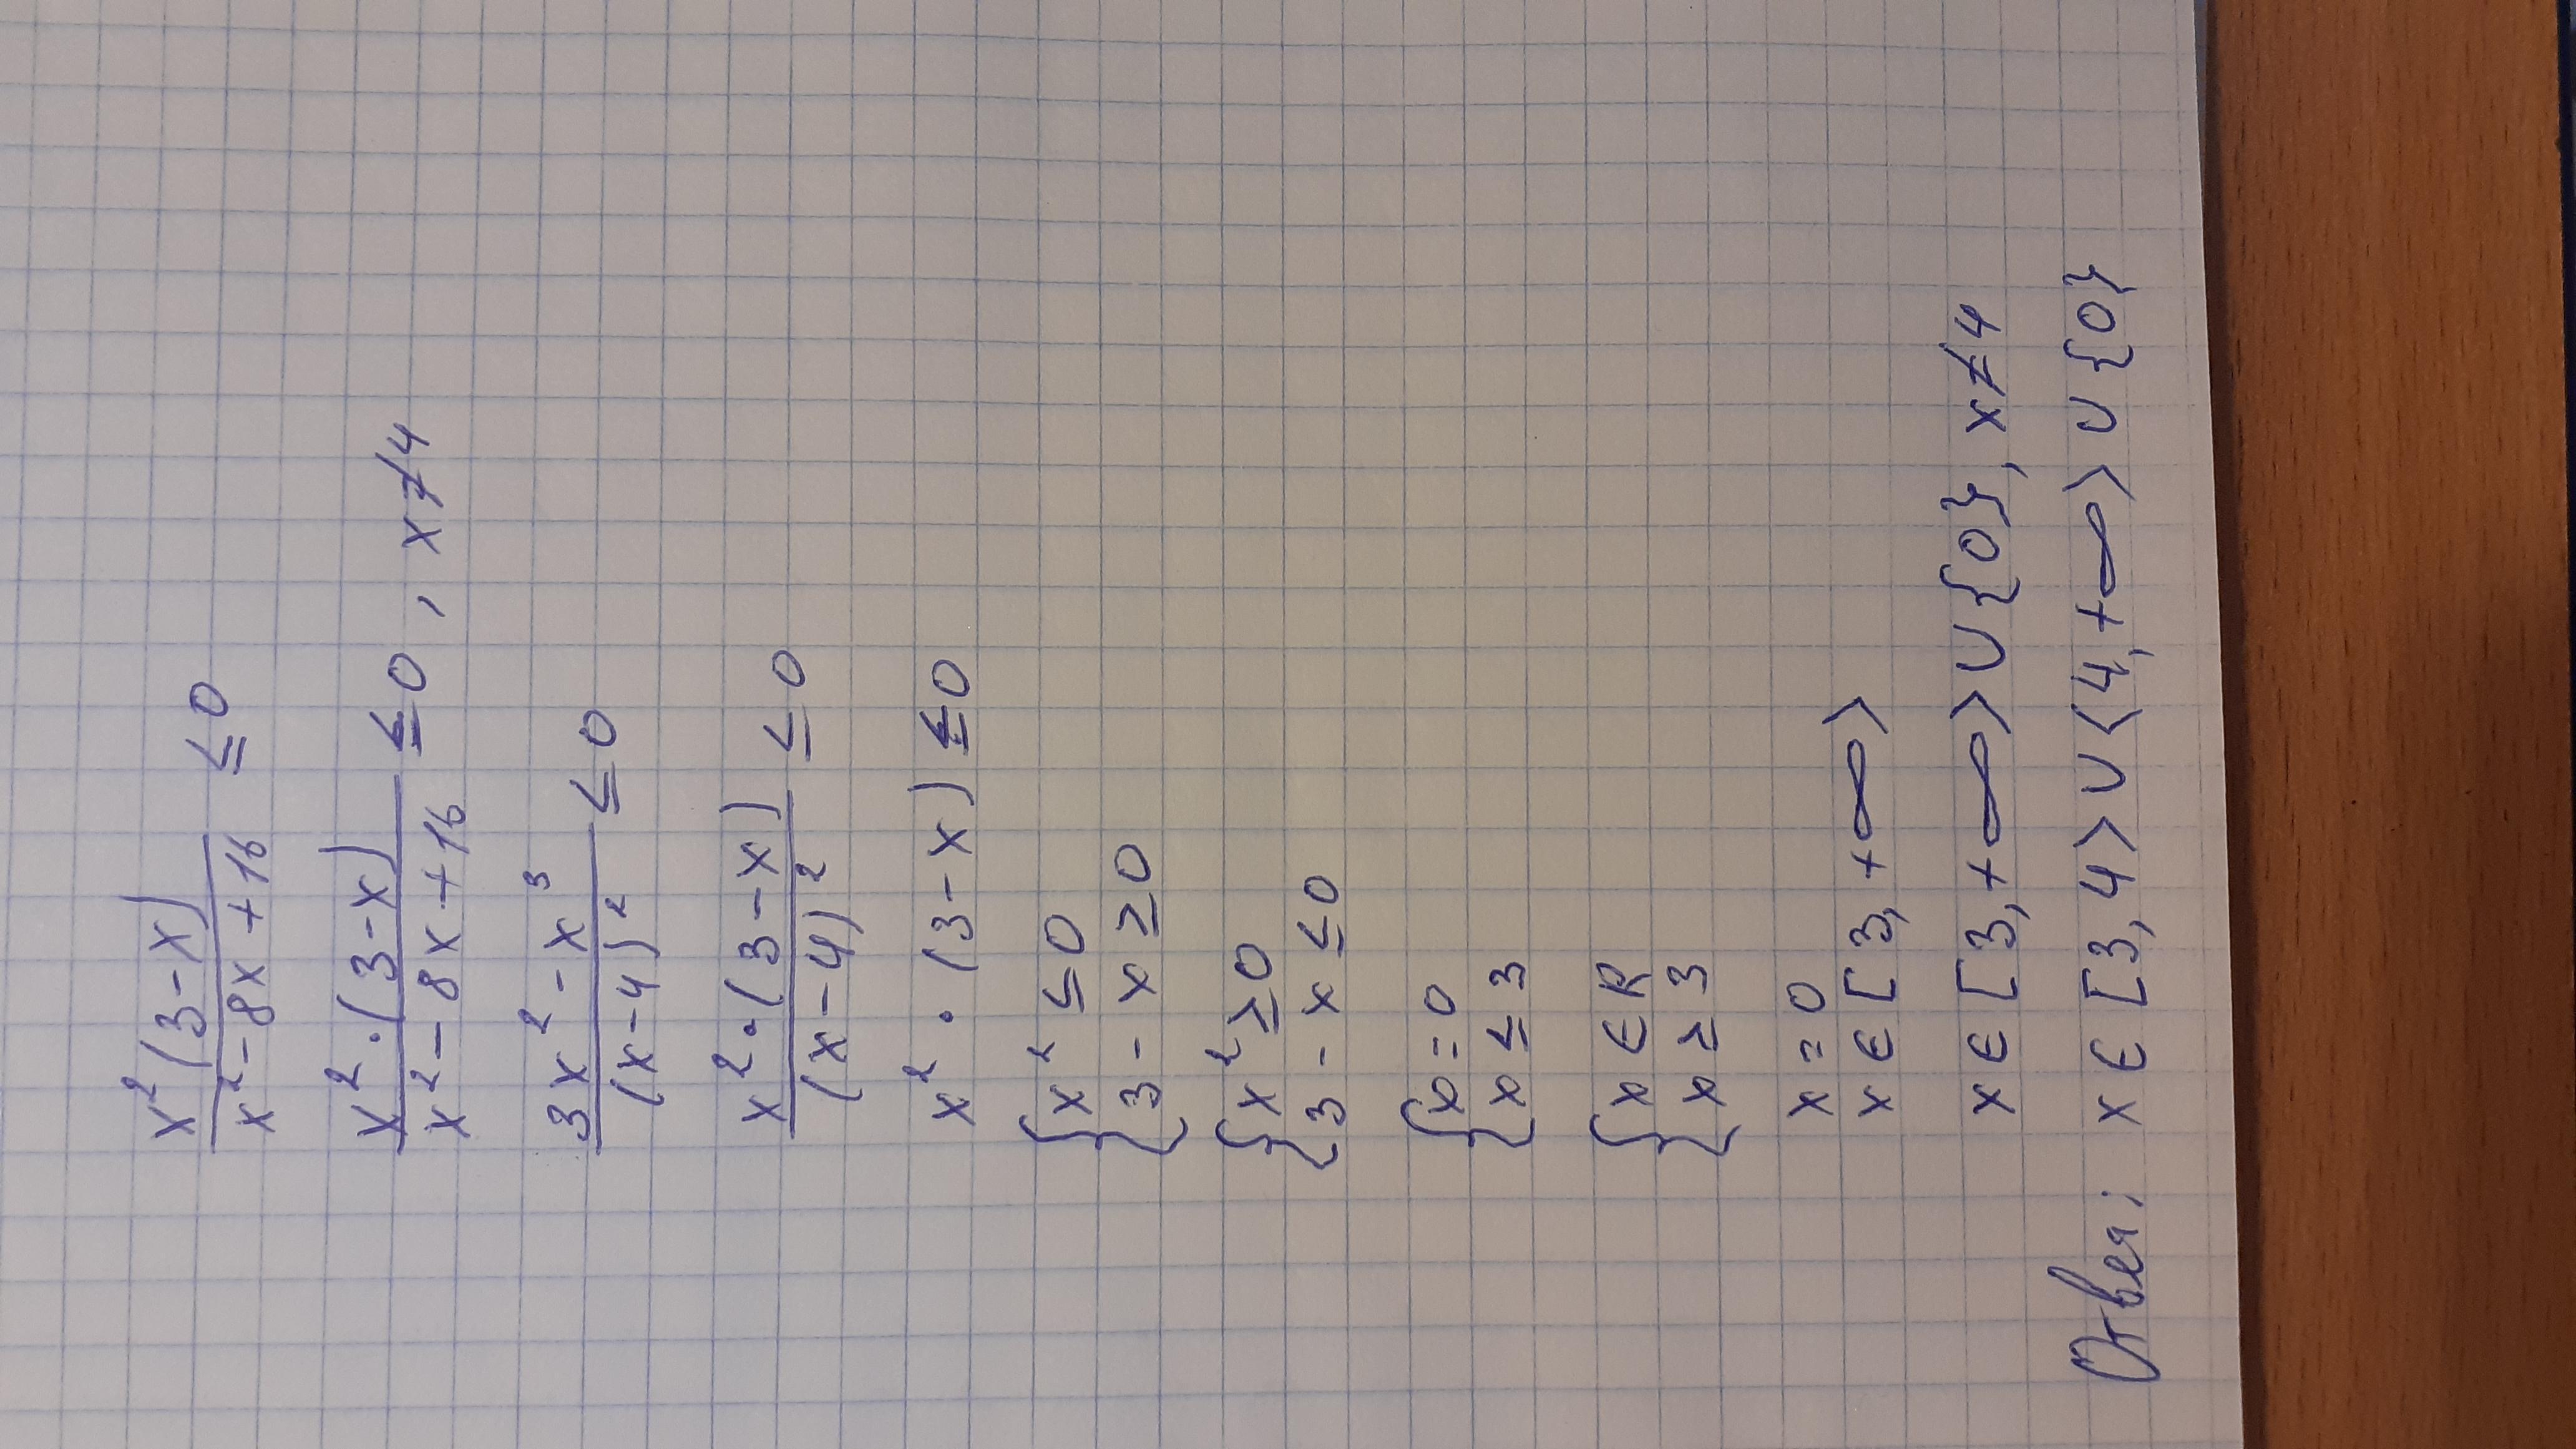 x²(3-x)/x²-8x+16 ≤ 0
x²·(3-x)/x²-8x+16 ≤ 0, x≠4
3x²-x³/(x-4)² ≤ 0
x²·(3-x)/(x-4)² ≤ 0
x²·(3-x) ≤ 0
{x² ≤ 0
3-x ≥ 0
{x² ≥ 0
3-x ≤ 0
{x=0
x ≤ 3
{x ∈ R
x ≥ 3
x=0
x ∈ [3,+∞⟩
x ∈ [3,+∞⟩∪{0}, x≠4
Ответ: x ∈ [3,4⟩∪⟨4,+∞⟩∪{0}